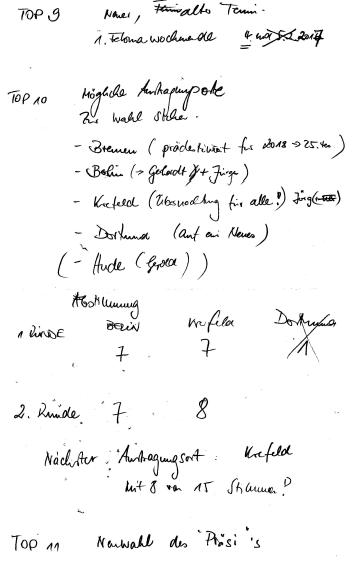 TOP 9 Neuer, alter Termin.
1. Februarwochenende 4. und 5.2.2017
TOP 10 Mögliche Austragungsorte
Zur Wahl stehen.
- Bremen (prädestiniert für 2018 → 25.
- Berlin (→ Gebhardt + Jürgen)
- Krefeld (Überraschung für alle!) Jörg
- Dortmund (auf ein Neues)
(- Hude (Gerold))
Abstimmung
1 RUNDE BERLIN Krefeld Dortmund
7 7 1
2. Runde 7 8
Nächster Austragungsort: Krefeld
mit 8 von 15 Stimmen!
TOP 11 Neuwahl des "Präsi"s